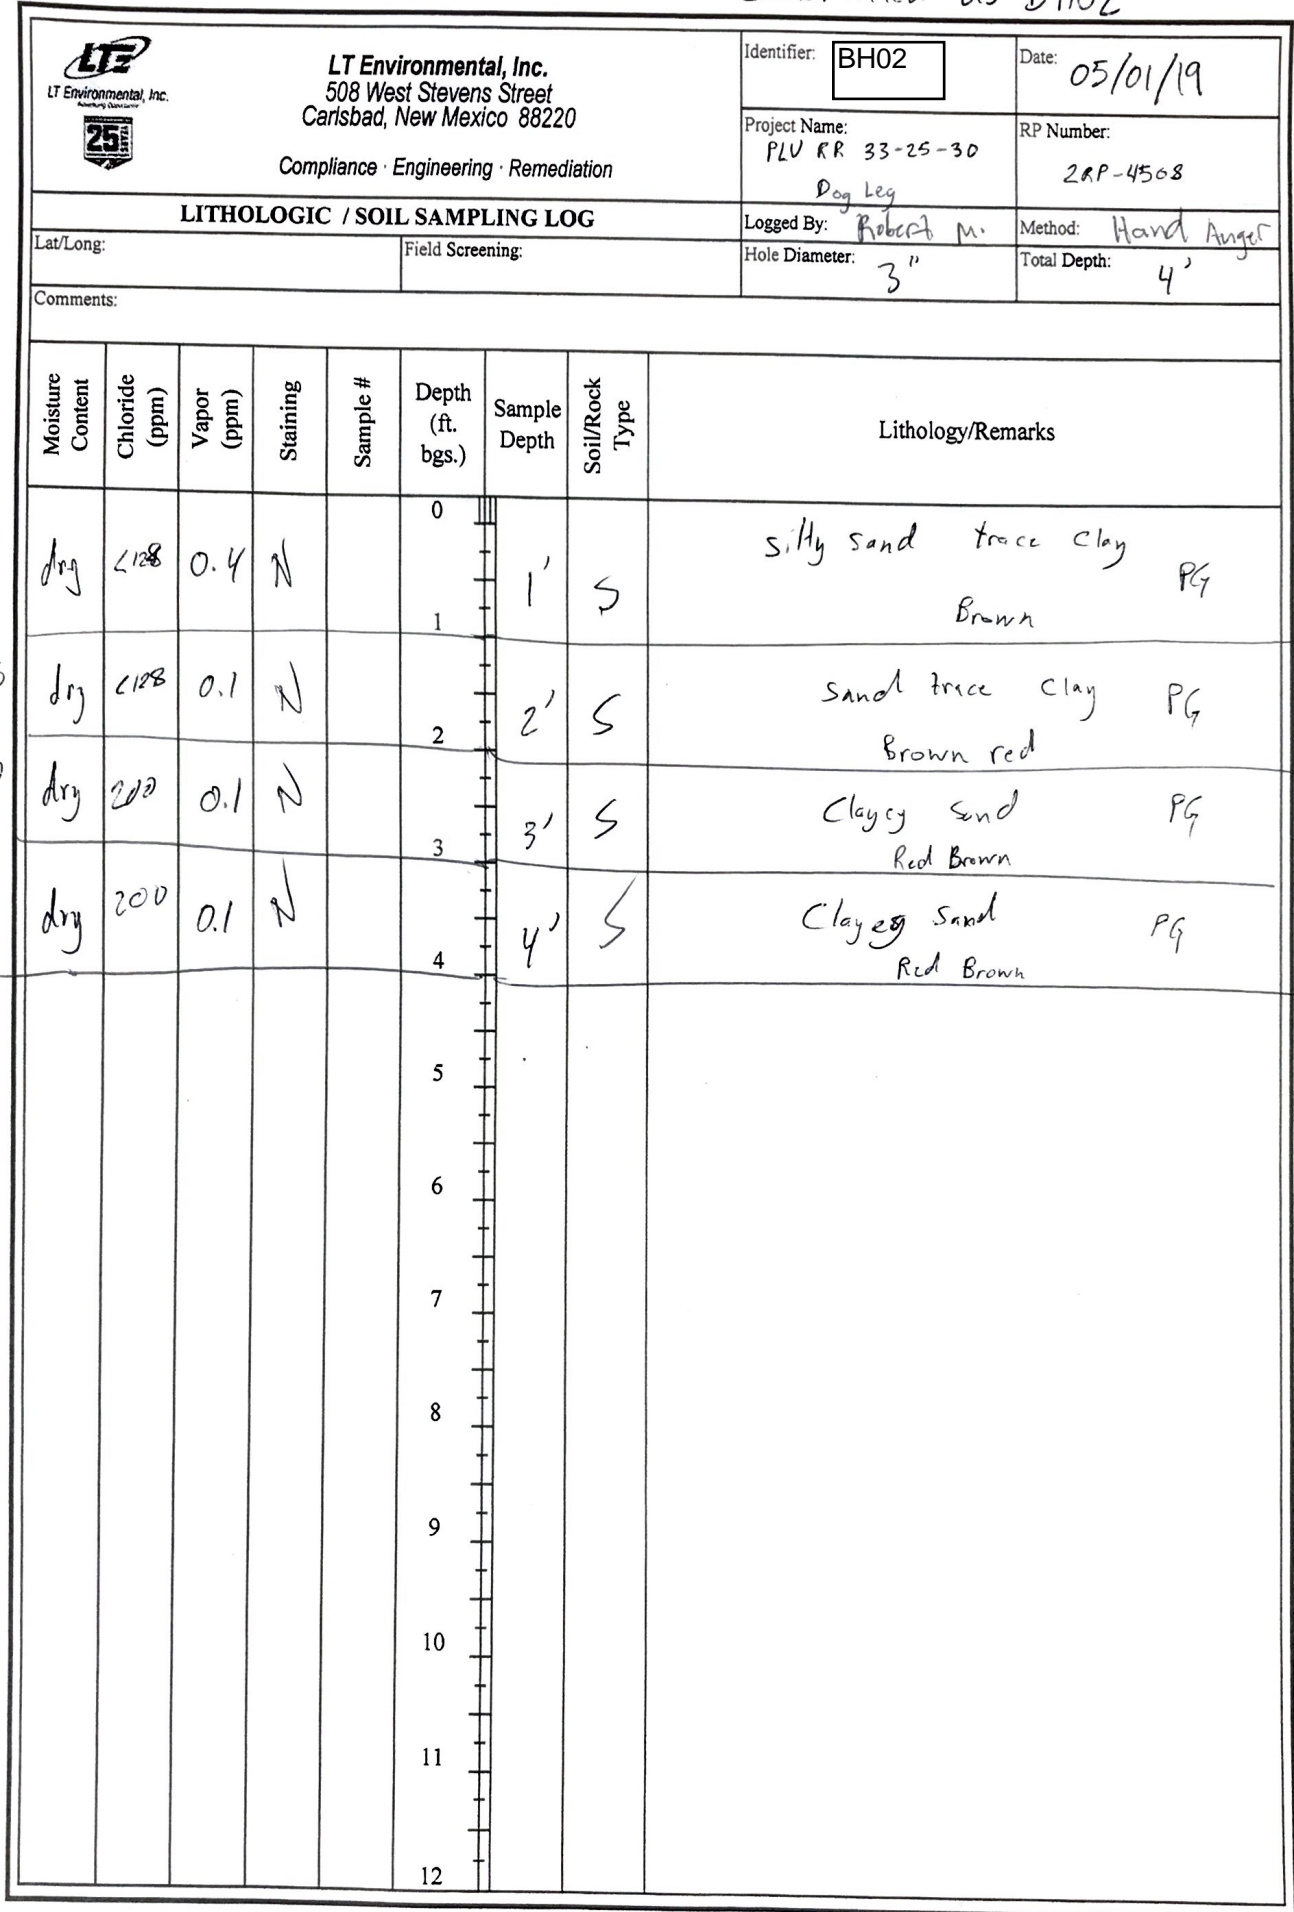 as BH02
LTE
LT Environmental, Inc.
25 YEARS
LT Environmental, Inc.
508 West Stevens Street
Carlsbad, New Mexico 88220
Compliance · Engineering · Remediation
Identifier: BH02
Date: 05/01/19
Project Name: PLU RR 33-25-30
Dog Leg
RP Number: 2RP-4508
LITHOLOGIC / SOIL SAMPLING LOG
Logged By: Robert M.
Method: Hand Auger
Lat/Long:
Field Screening:
Hole Diameter: 3"
Total Depth: 4'
Comments:
Moisture Content
Chloride (ppm)
Vapor (ppm)
Staining
Sample #
Depth (ft. bgs.)
Sample Depth
Soil/Rock Type
Lithology/Remarks
0
dry <128 0.4 N 1' S silty sand trace clay PG
Brown
1
dry <128 0.1 N 2' S Sand trace clay PG
Brown red
2
dry 200 0.1 N 3' S Clayey Sand PG
Red Brown
3
dry 200 0.1 N 4' S Clayey Sand PG
Red Brown
4
5
6
7
8
9
10
11
12